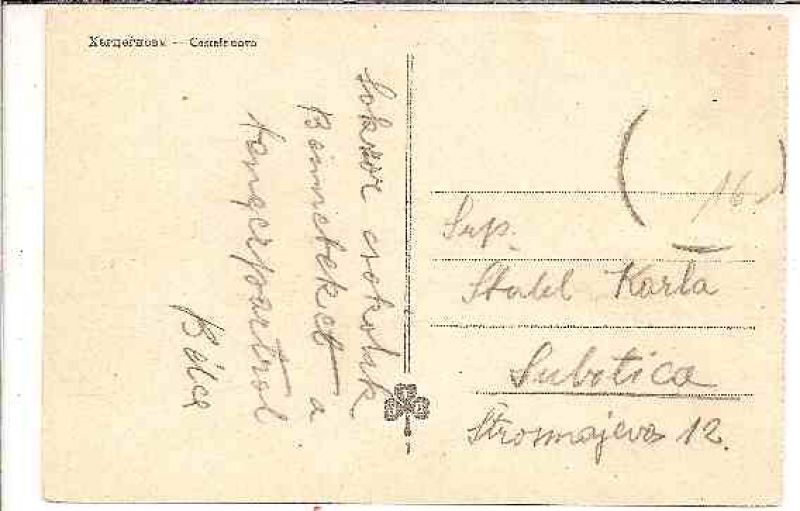 Херцегнови — Castelnuovo
Sokszor csokoluk
Benneteket a
tengerpartrol
Béla
16
Sup.
Stahl Karla
Subotica
Štrosmajeva 12.